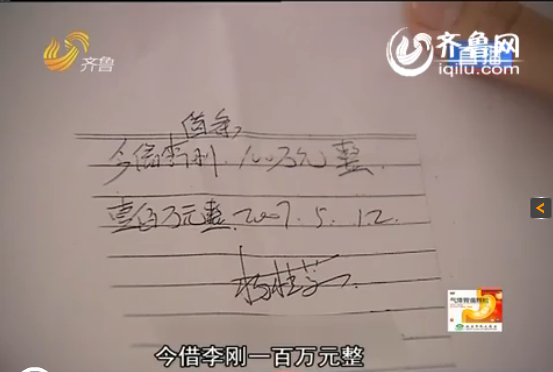 齐鲁
齐鲁网
直播
iqilu.com
借条
今借李刚.100万元整.
壹佰万元整.2007.5.12.
杨桂芬
气滞胃痛颗粒
今借李刚一百万元整